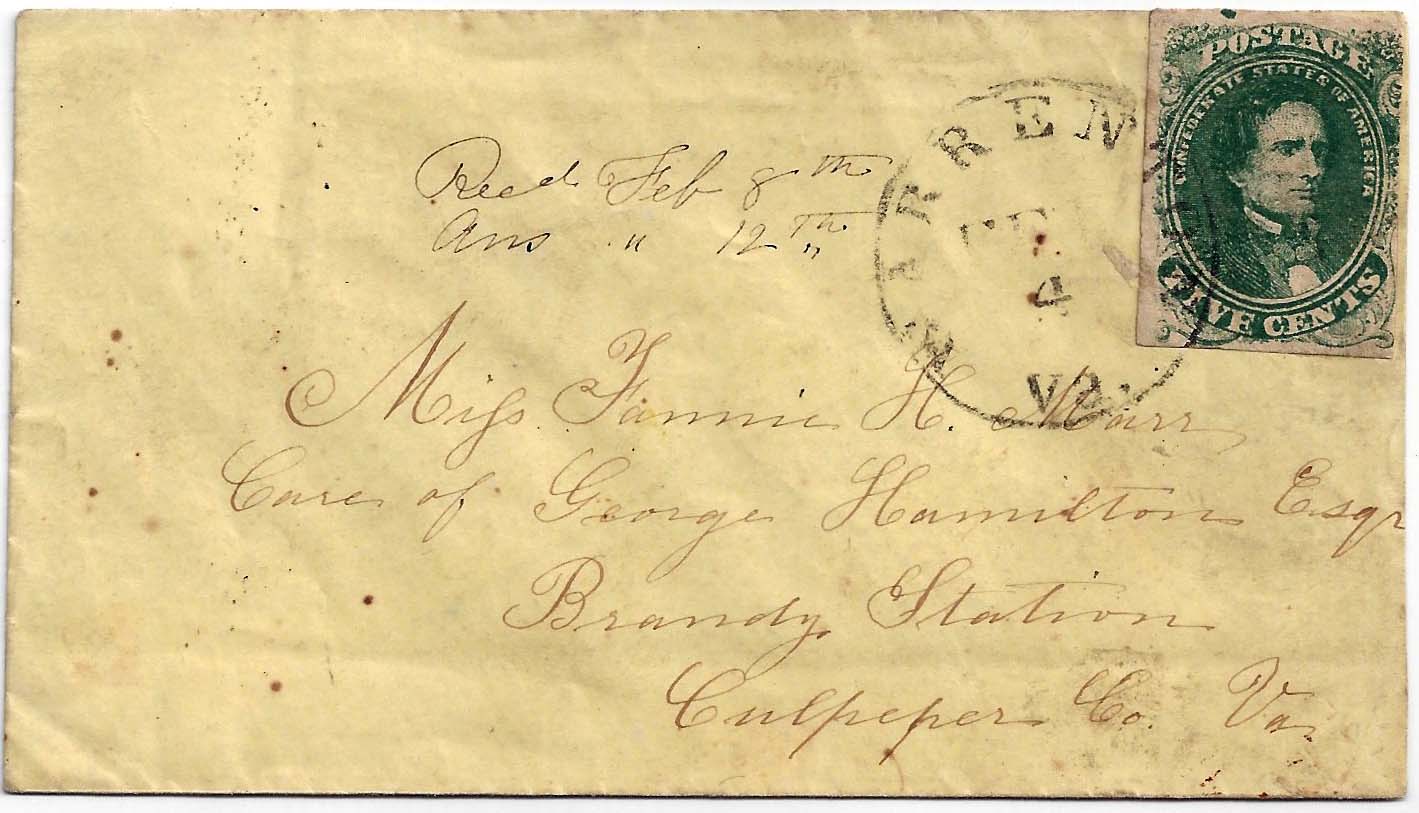 POSTAGE
CONFEDERATE STATES OF AMERICA
FIVE CENTS
WARRENTON
FE
4
Va.
Recd Feb 8th
Ans " 12th "
Miss Fannie H. Marr
Care of George Hamilton Esqr
Brandy Station
Culpeper Co. Va.